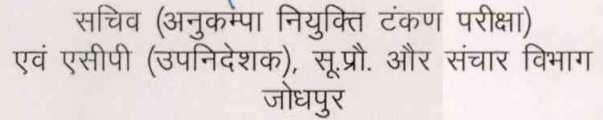 सचिव (अनुकम्पा नियुक्ति टंकण परीक्षा)
एवं एसीपी (उपनिदेशक), सू.प्रौ. और संचार विभाग
जोधपुर